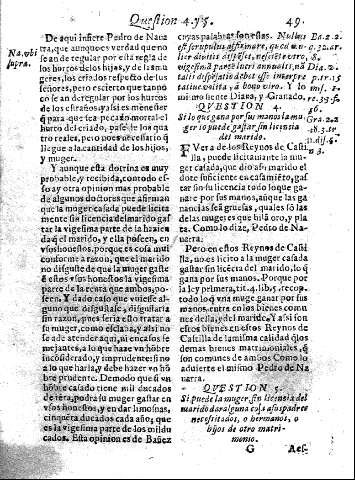 Question 4. y 5. 49.
Na, vbi
supra.
De aqui infiere Pedro de Naua
rra, que aunque es verdad que no
se an de regular por esta regla de
los hurtos de los hijos, y de las mu
geres, los criados respecto de sus
señores, pero es cierto que tanto
se an de regular por los hurtos
de los estraños, y assi es menester
que para que sea pecado mortal el
hurto del criado, passe de los qua
tro reales, pero no es necessario que
llegue a la cantidad de los hijos,
y muger.
Y aunque esta doctrina es muy
probable, y recibida, con todo es-
so ay otra opinion mas probable
de algunos doctores que afirman
que la muger casada puede licita
mente sin licencia del marido gas-
tar la vigesima parte de la hazien
da que el marido, y ella posseen, en
vsos honestos, porque es cosa muy
conforme a razon, que el marido
no disguste de que la muger gaste
en estos vsos honestos la vigesima
parte de la renta que ambos po-
seen. Y dado caso que vuiesse alg-
uno que disgustasse, disgustaria
sin razon, pues seria esso tratar a
su muger, como esclaua, y assi no
se ade atender aqui, ni en casos se
mejantes, a lo que haze vn hõbre in-
considerado, y imprudente sino
a lo que haria, y debe hazer vn hõ
bre prudente. De modo que si vn
hõbre casado tiene mil ducados
de rẽta, podra su muger gastar en
vsos honestos, y en dar limosnas,
cinquẽta ducados cada año, que
es la vigesima parte de los mil du
cados. Esta opinion es de Bañez
cuyas palabras son estas. Nullus
est scrupulus assignare,
Y lo mis
mo siente Diaz, y Granado.
QVESTION 4.
Si lo que gana por sus manos la mu
ger lo puede gastar sin licencia
del marido.
Fvera de los Reynos de Casti
lla, puede licitamente la mu
ger casada, que dio a su marido el
dote suficiente en casamiẽto, gas
tar sin su licencia todo lo que ga
nare por sus manos, aunque las ga
nancias seã gruesas, quales sõ las
de las mugeres que hilã oro, y pla
ta. Como lo dize, Pedro de Na-
uarra.
Pero en estos Reynos de Casti
lla, no es licito a la muger casada
gastar sin licẽcia del marido, lo que
gana por sus manos. Porque por
la ley primera, tit. 4. lib. 5. recop.
todo lo que vna muger ganare por sus
manos, entra en los bienes comu
nes della, y del marido. Y assi son
estos bienes en estos Reynos de
Castilla de la misma calidad que los
demas bienes matrimoniales, que
son comunes de ambos. Como lo
aduierte el mismo Pedro de Na
uarra.
QVESTION 5.
Si puede la muger, sin licencia del
marido dar alguna cosa a sus padres
necessitados, o hermanos, o
hijos de otro matri-
monio.
G Aes-